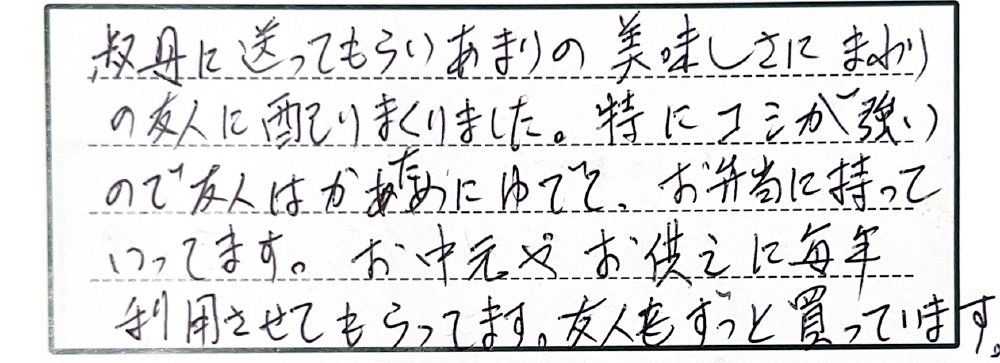 叔母に送ってもらいあまりの美味しさにまわり
の友人に配りまくりました。特にコシが強い
ので友人はかためにゆでて、お弁当に持って
いってます。お中元やお供えに毎年
利用させてもらってます。友人もずっと買っています。